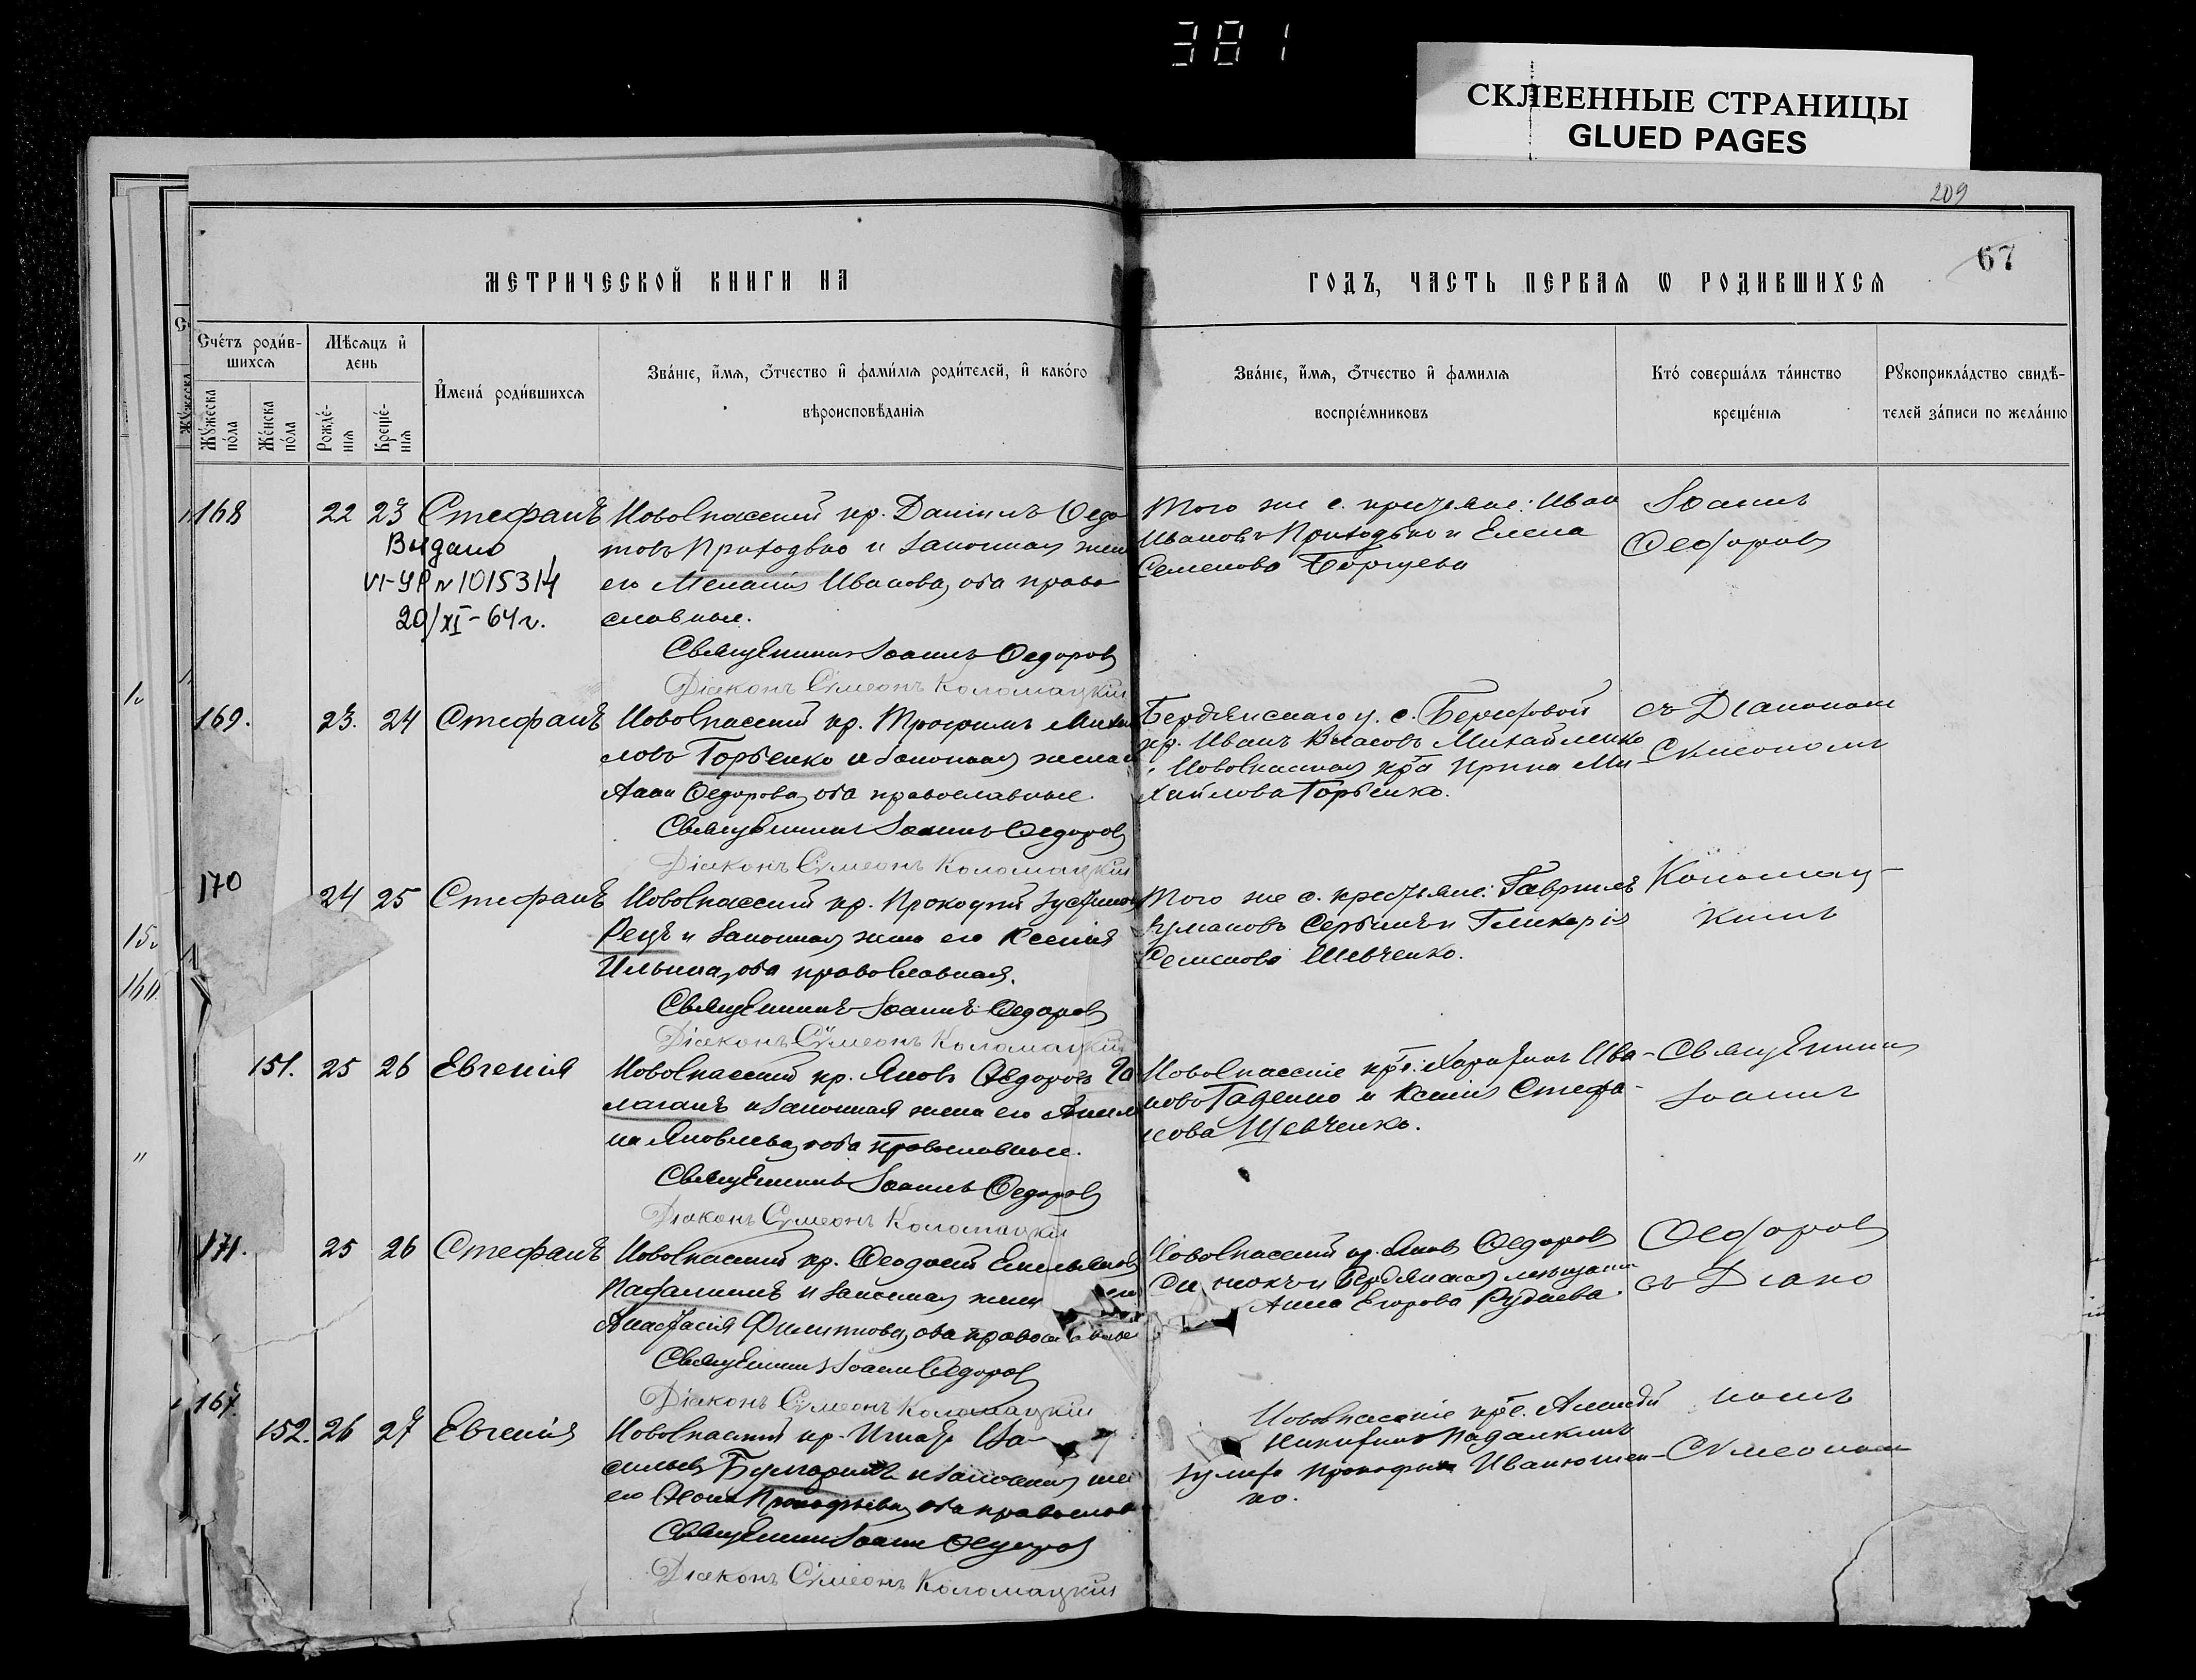 381
СКЛЕЕННЫЕ СТРАНИЦЫ
GLUED PAGES
209
67
МЕТРИЧЕСКОЙ КНИГИ НА
ГОДЪ, ЧАСТЬ ПЕРВАѦ Ѡ РОДИВШИХСѦ
Счéтъ роди́в-
шихсѧ
Мѣсѧцъ и҆
день
Мꙋ́жеска
по́ла
Же́нска
по́ла
Рожде́-
нїѧ
Креще́-
нїѧ
И҆мена́ роди́вшихсѧ
Зва́нїе, и҆́мѧ, ѻ҆́тчество и҆ фами́лїѧ роди́телей, и҆ како́гѡ
вѣроисповѣ́данїѧ
Зва́нїе, и҆́мѧ, ѻ҆́тчество и҆ фами́лїѧ
воспрїе́мниковъ
Кто̀ соверша́лъ та́инство
креще́нїѧ
Рꙋкоприкла́дство свидѣ́-
телей за́писи по жела́нїю
168 22 23 Стефанъ Новоспасский кр. Даніилъ Ѳедо
товъ Приходько и законная жен
его Меланія Иванова, оба право
славные.
Священникъ Іоаннъ Ѳедоровъ
Діаконъ Сѵмеонъ Коломацкій
Выдано
VI-УР № 1015314
20/XI-64 г.
Того же с. крестьяне: Иван
Ивановъ Приходько и Елена
Семенова
Іоаннъ
Ѳеодоровъ
169. 23. 24 Стефанъ Новоспасский кр. Трофимъ Михаи
ловъ Горбенко и законная жена
Анна Ѳедорова, оба православные.
Священникъ Іоаннъ Ѳедоровъ
Діаконъ Сѵмеонъ Коломацкій
Бердянскаго у. с. Берестовой
кр. Иванъ Власовъ Михайленко
Новоспасская кр-а Ирина Ми-
хайлова Горбенко.
съ Діакономъ
Сѵмеономъ
170 24 25 Стефанъ Новоспасский кр. Прокопій
Рецъ и законная жена его Ксенія
Ильина, оба православная.
Священникъ Іоаннъ Ѳедоровъ
Діаконъ Сѵмеонъ Коломацкій
Того же с. крестьяне: Гавріилъ
Сербинъ и Гликерія
Семенова Шевченко.
Коломац-
кимъ
151. 25 26 Евгенія Новоспасский кр. Яковъ Ѳедоровъ Га
лаганъ и законная жена его
на Яковлева, оба православные.
Священникъ Іоаннъ Ѳедоровъ
Діаконъ Сѵмеонъ Коломацкій
Новоспасскіе кр-е: Харитонъ Ива-
новъ и Ксенія Стефа-
нова Шевченко.
Священникъ
Іоаннъ
171. 25 26 Стефанъ Новоспасский кр. Ѳеодосій Емельяновъ
Падалкинъ и законная жена его
Анастасія Филиппова, оба православные
Священникъ Іоаннъ Ѳедоровъ
Діаконъ Сѵмеонъ Коломацкій
Новоспасский кр. Яковъ Ѳедоровъ
и Бердянская мещанка
Анна Егорова Рудаева.
Ѳеодоровъ
съ Діако
167.
152. 26 27 Евгенія Новоспасский кр. Игнатъ Ва-
сильевъ и законная жена
его Прокофьева, оба православ
Священникъ Іоаннъ Ѳедоровъ
Діаконъ Сѵмеонъ Коломацкій
Новоспасскіе кр-е.
Никитинъ Падалкинъ
Прокофьева Иванющен-
ко.
номъ
Сѵмеономъ